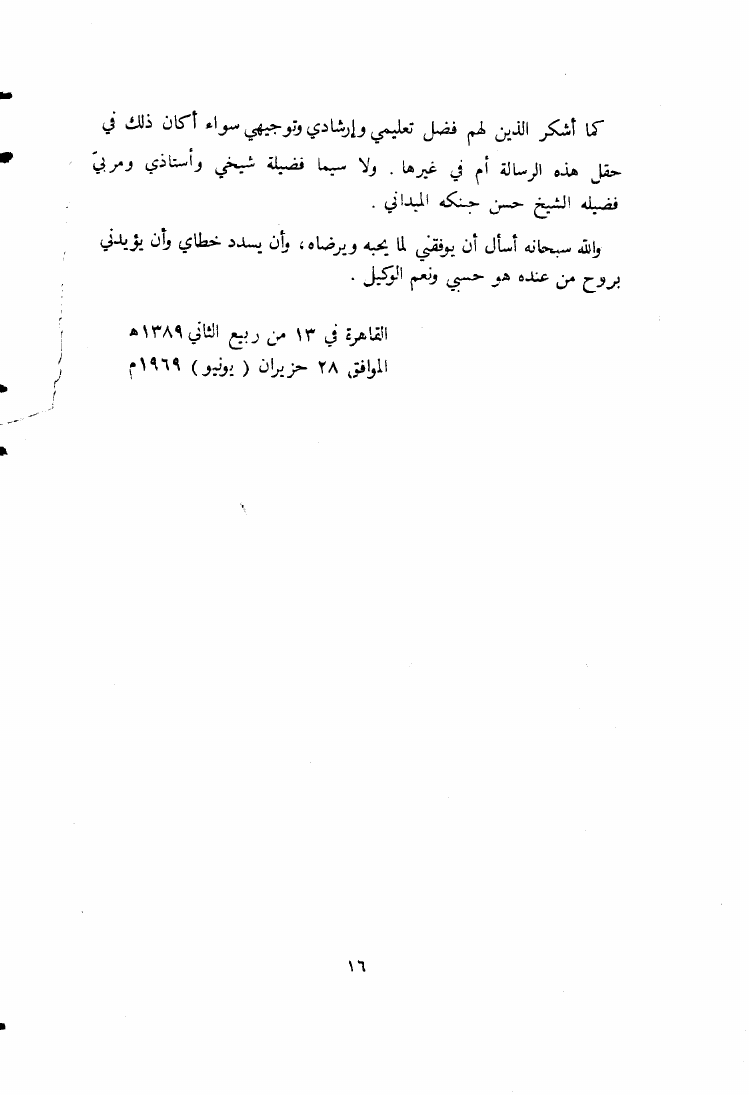 كما أشكر الذين لهم فضل تعليمي وإرشادي وتوجيهي سواء أكان ذلك في
حقل هذه الرسالة أم في غيرها . ولا سيما فضيلة شيخي وأستاذي ومربيّ
فضيله الشيخ حسن حبنكه الميداني .
والله سبحانه أسأل أن يوفقني لما يحبه ويرضاه ، وأن يسدد خطاي وأن يؤيدني
بروح من عنده هو حسبي ونعم الوكيل .
القاهرة في ١٣ من ربيع الثاني ١٣٨٩ه
الموافق ٢٨ حزيران ( يونيو ) ١٩٦٩م
١٦